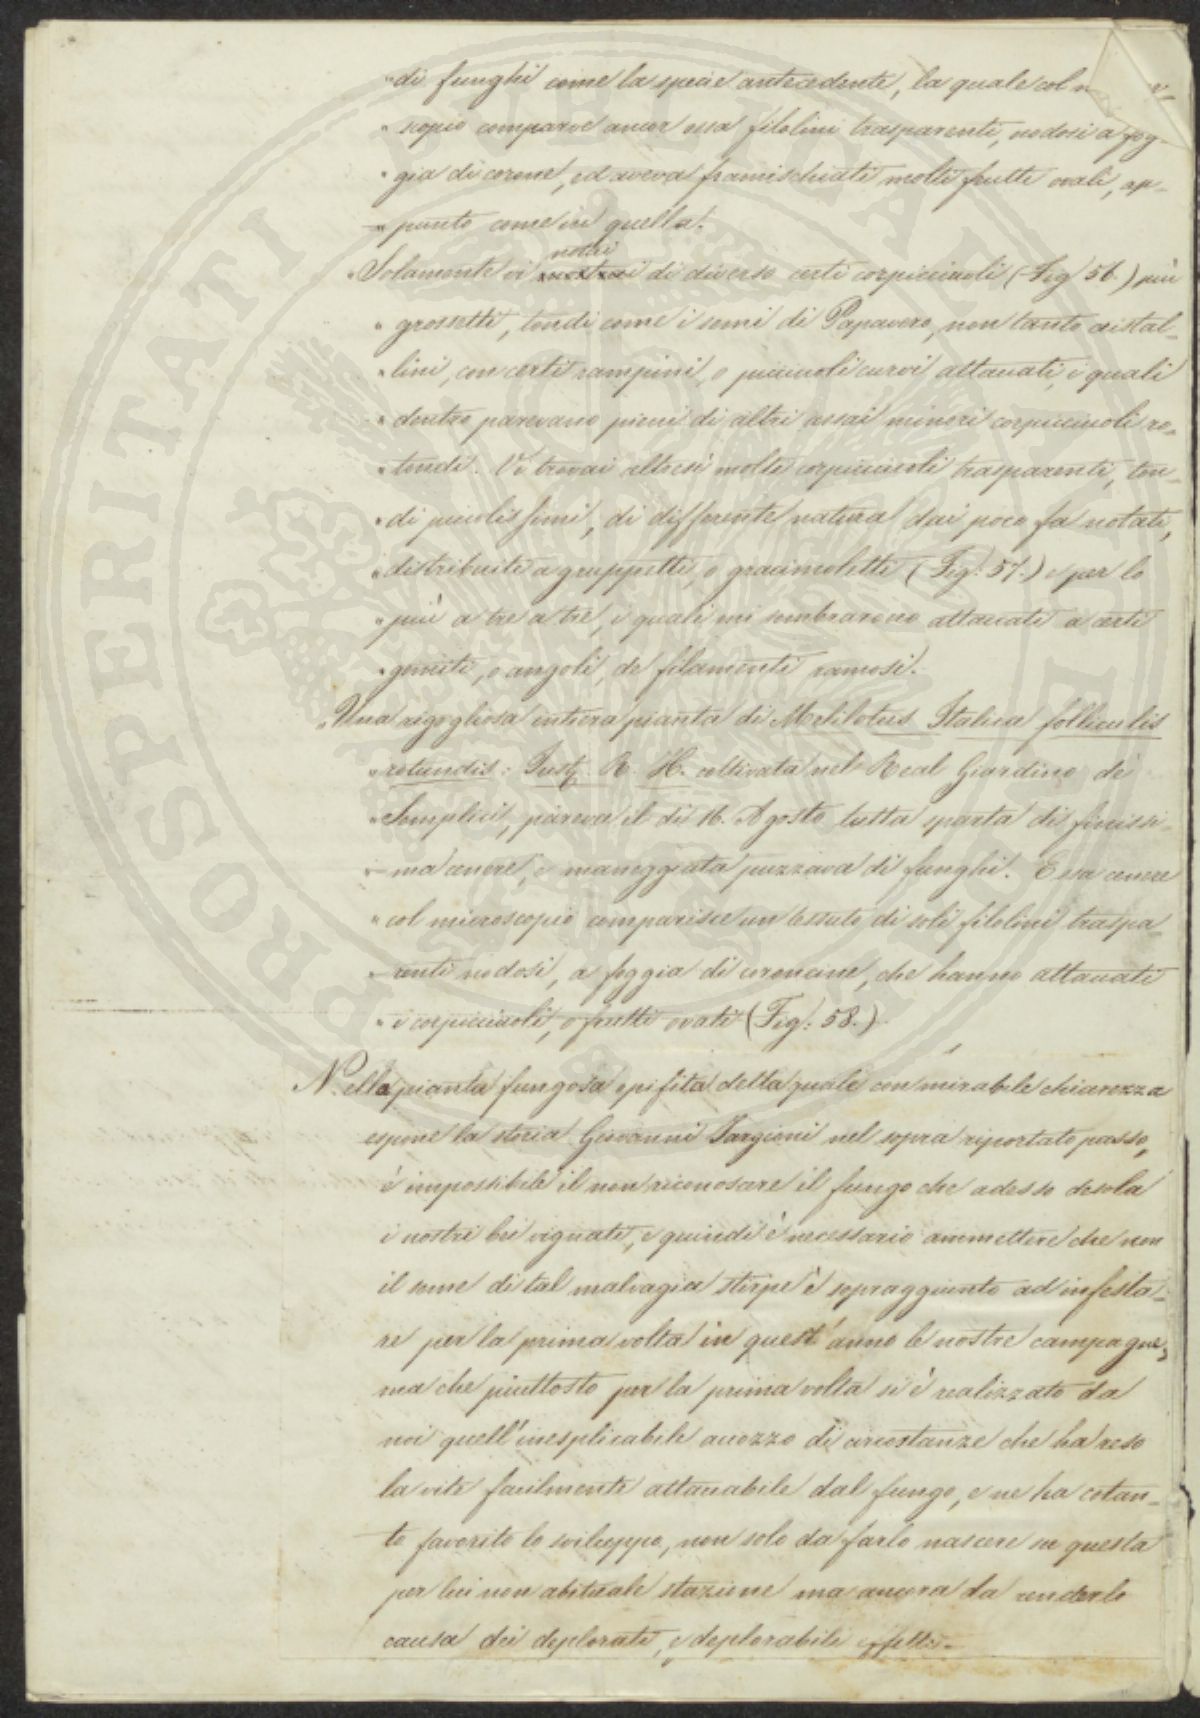 "di funghi come la specie antecedente, la quale col
"scopio comparve ancor essa filolini trasparenti, nodosi a fog-
"gia di corone, ed aveva framischiati molti frutti ovali, ap-
"punto come in quella.
"Solamente vi notai di diverso certi corpicciuoli (Fig 56.) più
"grossetti, tondi come i semi di Papavero, non tanto cristal-
"lini, con certi rampini, o picciuoli curvi attaccati, i quali
"dentro parevano pieni di altri assai minori corpicciuoli ro-
"tondi. Vi trovai altresì molti corpicciuoli trasparenti, ton-
"di piccolissimi, di differente natura dai poco fa notati,
"distribuiti a gruppetti, o gracimoletti (Fig: 57.) e per lo
"più a tre a tre, i quali mi sembrarono attaccati a certi
"gomiti, o angoli, de' filamenti ramosi.
"Una rigogliosa intiera pianta di Melilotus Italica folliculis
"rotundis: R. H. coltivata nel Real Giardino de'
"Semplici, pareva il dì 16. Agosto tutta sparta di finissi-
"ma cenere, e maneggiata puzzava di funghi. Essa cenere
"col microscopio comparisce un tessuto di soli filolini traspa-
"renti nodosi, a foggia di coroncine, che hanno attaccati
"i corpicciuoli, o frutti ovati (Fig: 58.)
Nella pianta fungosa epifita della quale con mirabile chiarezza
espone la storia Giovanni Targioni nel sopra riportato passo,
è impossibile il non riconoscere il fungo che adesso desola
i nostri bei vignati, e quindi è necessario ammettere che non
il seme di tal malvagia stirpe è sopraggiunto ad infesta-
re per la prima volta in quest'anno le nostre campagne,
ma che piuttosto per la prima volta si è realizzato da
noi quell'inesplicabile accozzo di circostanze che ha reso
la vite facilmente attaccabile dal fungo, e ne ha cotan-
to favorito lo sviluppo, non solo da farlo nascere su questa
per lui non abituale stazione ma ancora da renderlo
causa dei deplorati, e deplorabili effetti.